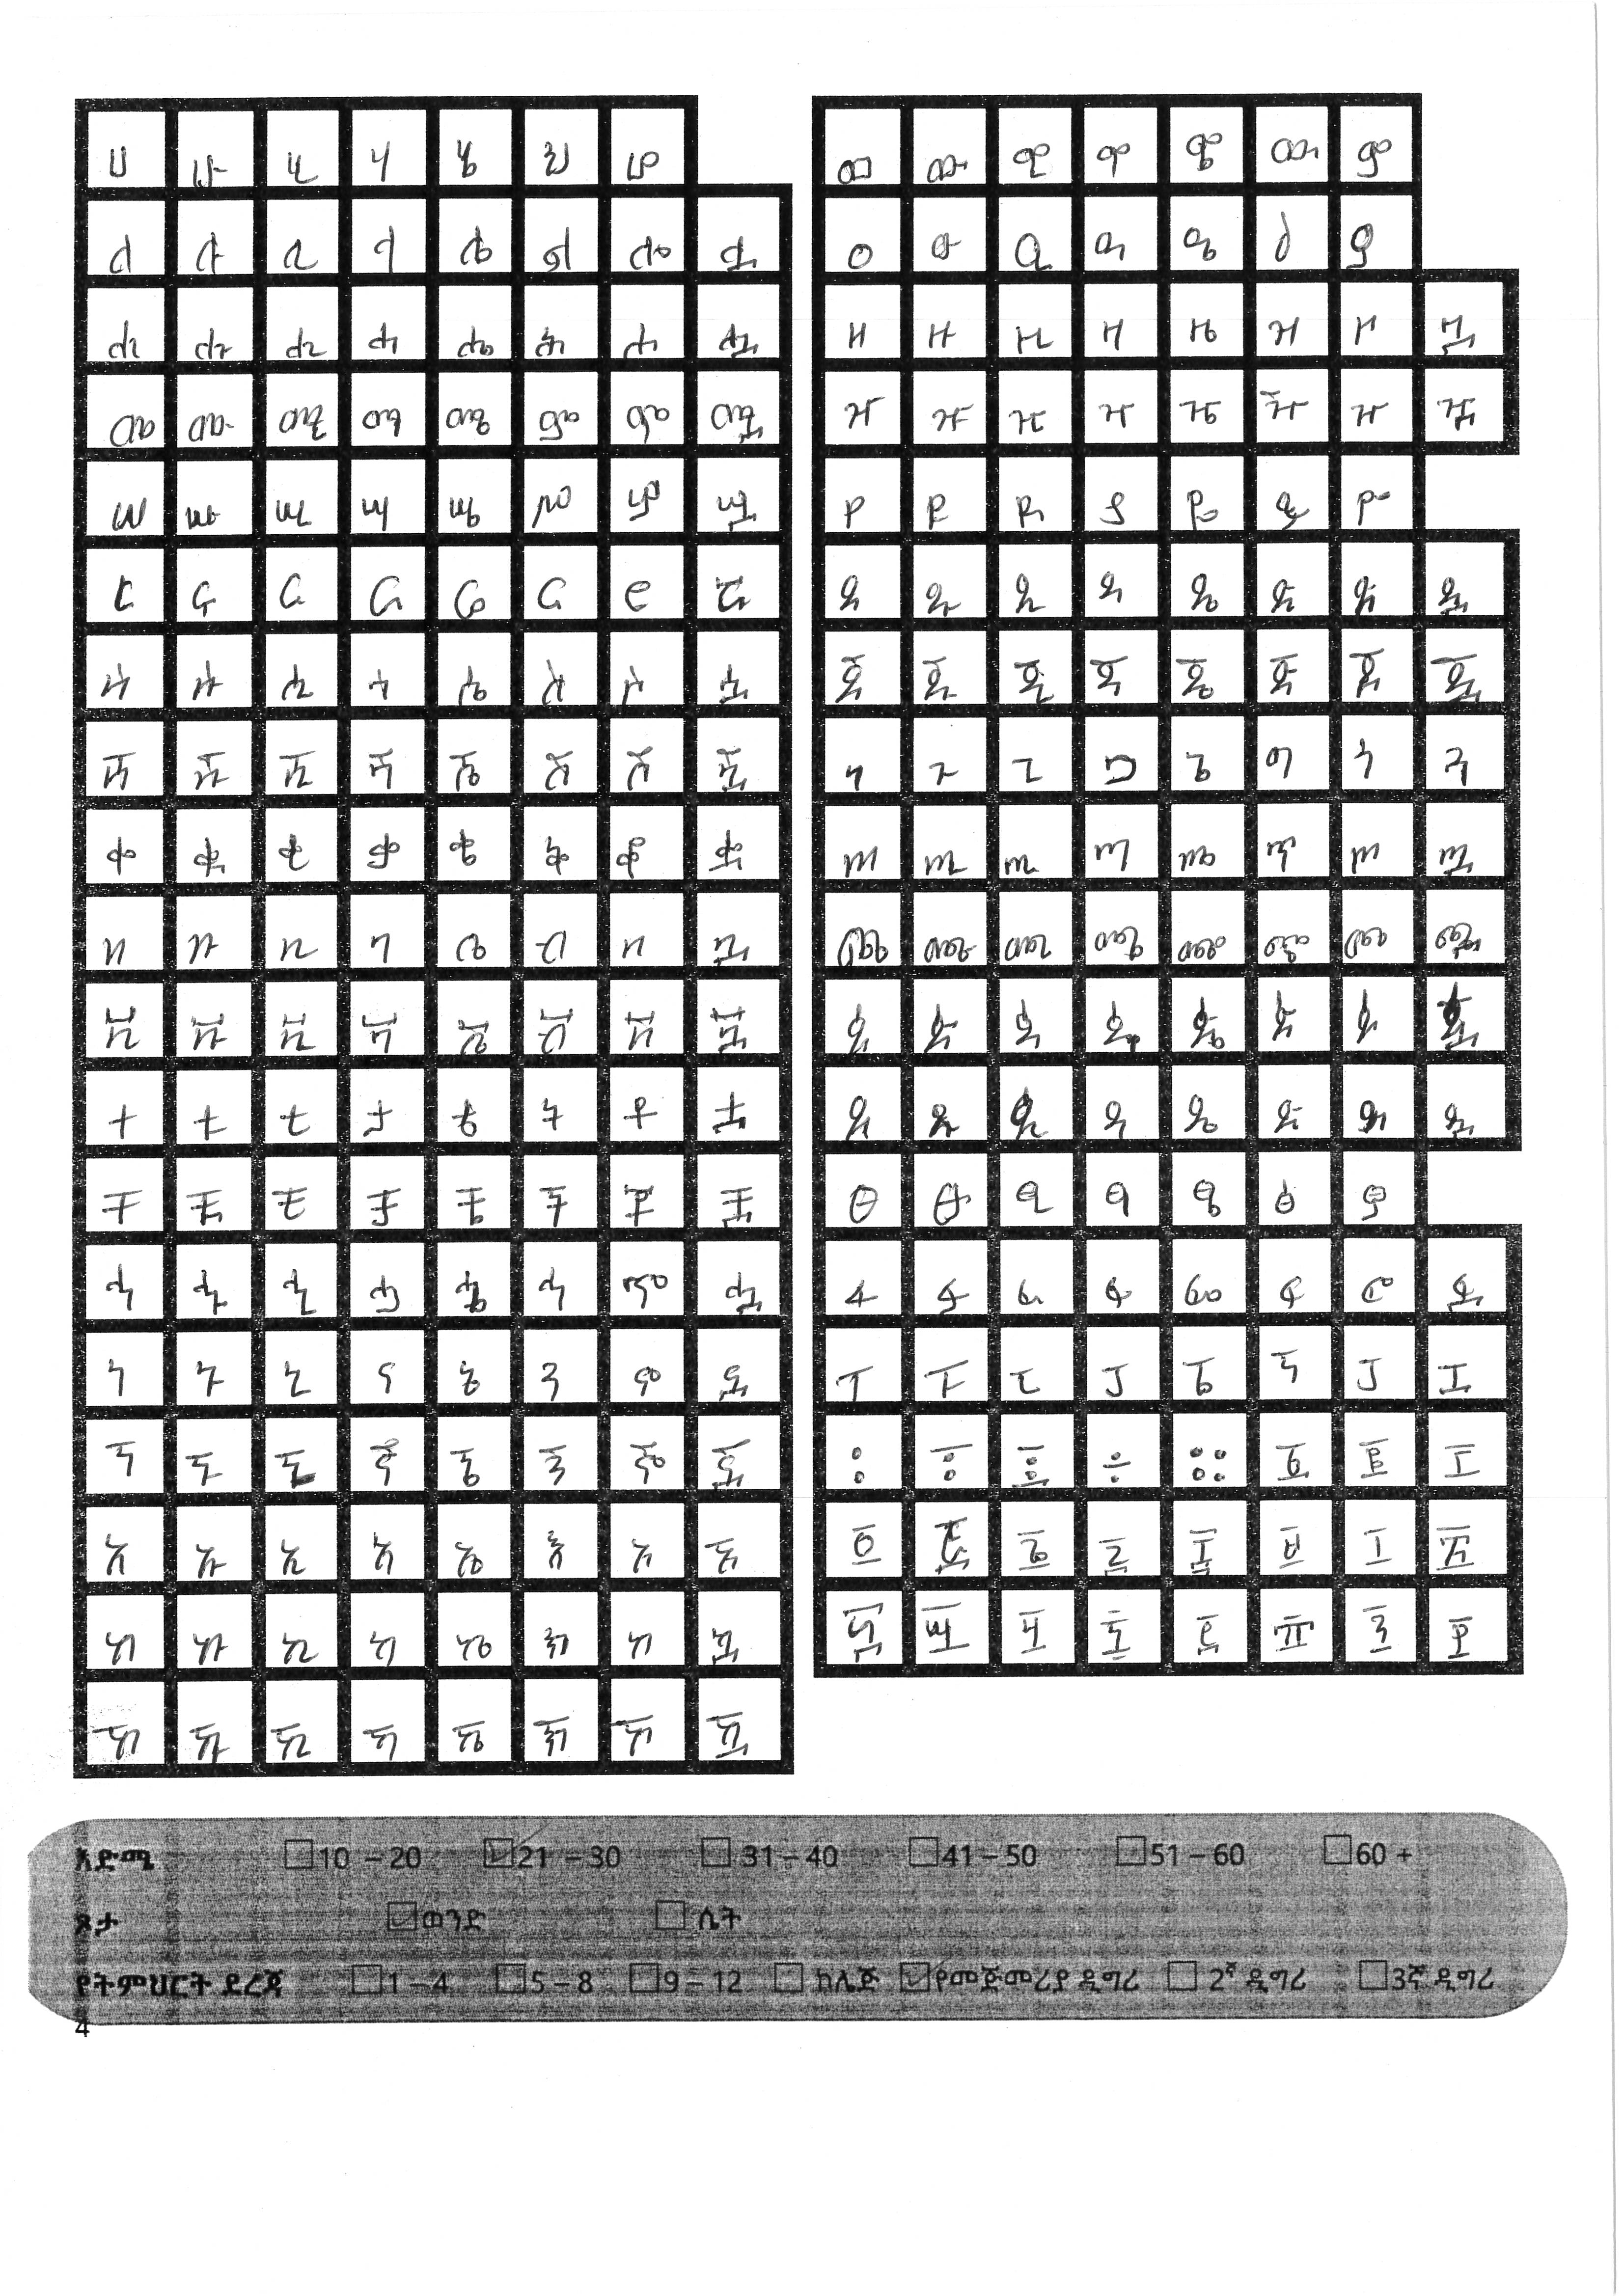 ሀ ሁ ሂ ሃ ሄ ህ ሆ
ለ ሉ ሊ ላ ሌ ል ሎ ሏ
ሐ ሑ ሒ ሓ ሔ ሕ ሖ ሗ
መ ሙ ሚ ማ ሜ ም ሞ ሟ
ሠ ሡ ሢ ሣ ሤ ሥ ሦ ሧ
ረ ሩ ሪ ራ ሬ ር ሮ ሯ
ሰ ሱ ሲ ሳ ሴ ስ ሶ ሷ
ሸ ሹ ሺ ሻ ሼ ሽ ሾ ሿ
ቀ ቁ ቂ ቃ ቄ ቅ ቆ ቋ
በ ቡ ቢ ባ ቤ ብ ቦ ቧ
ቨ ቩ ቪ ቫ ቬ ቭ ቮ ቯ
ተ ቱ ቲ ታ ቴ ት ቶ ቷ
ቸ ቹ ቺ ቻ ቼ ች ቾ ቿ
ኀ ኁ ኂ ኃ ኄ ኅ ኆ ኋ
ነ ኑ ኒ ና ኔ ን ኖ ኗ
ኘ ኙ ኚ ኛ ኜ ኝ ኞ ኟ
አ ኡ ኢ ኣ ኤ እ ኦ ኧ
ከ ኩ ኪ ካ ኬ ክ ኮ ኳ
ኸ ኹ ኺ ኻ ኼ ኽ ኾ ዃ
ወ ዉ ዊ ዋ ዌ ው ዎ
ዐ ዑ ዒ ዓ ዔ ዕ ዖ
ዘ ዙ ዚ ዛ ዜ ዝ ዞ ዟ
ዠ ዡ ዢ ዣ ዤ ዥ ዦ ዧ
የ ዩ ዪ ያ ዬ ይ ዮ
ደ ዱ ዲ ዳ ዴ ድ ዶ ዷ
ጀ ጁ ጂ ጃ ጄ ጅ ጆ ጇ
ገ ጉ ጊ ጋ ጌ ግ ጎ ጓ
ጠ ጡ ጢ ጣ ጤ ጥ ጦ ጧ
ጨ ጩ ጪ ጫ ጬ ጭ ጮ ጯ
ጰ ጱ ጲ ጳ ጴ ጵ ጶ ጷ
ጸ ጹ ጺ ጻ ጼ ጽ ጾ ጿ
ፀ ፁ ፂ ፃ ፄ ፅ ፆ
ፈ ፉ ፊ ፋ ፌ ፍ ፎ ፏ
ፐ ፑ ፒ ፓ ፔ ፕ ፖ ፗ
፡ ፣ ፤ ÷ ። ፩ ፪ ፫
፬ ፭ ፮ ፯ ፰ ፱ ፲ ፳
፴ ፵ ፶ ፷ ፸ ፹ ፺ ፻
እድሜ 10 – 20 21 – 30 31 – 40 41 – 50 51 – 60 60 +
ጾታ ወንድ ሴት
የትምህርት ደረጃ 1 – 4 5 – 8 9 – 12 ኮሌጅ የመጀመሪያ ዲግሪ 2ኛ ዲግሪ 3ኛ ዲግሪ
4